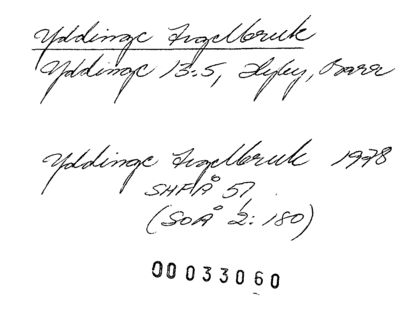 Yddinge Tegelbruk
Yddinge 13:5, Hyby, Bara
Yddinge Tegelbruk 1978
SHFÅ 51
(SOÅ 2:180)
00033060